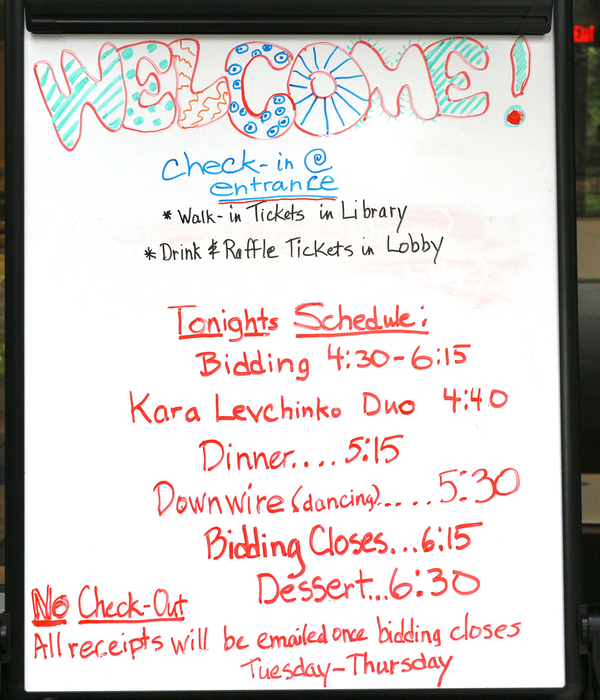 WELCOME!
Check-in @
entrance
* Walk-in Tickets in Library
* Drink & Raffle Tickets in Lobby
Tonights Schedule:
Bidding 4:30-6:15
Kara Levchinko Duo 4:40
Dinner.... 5:15
Downwire (dancing)..... 5:30
Bidding Closes...6:15
Dessert...6:30
No Check-Out
All receipts will be emailed once bidding closes
Tuesday-Thursday